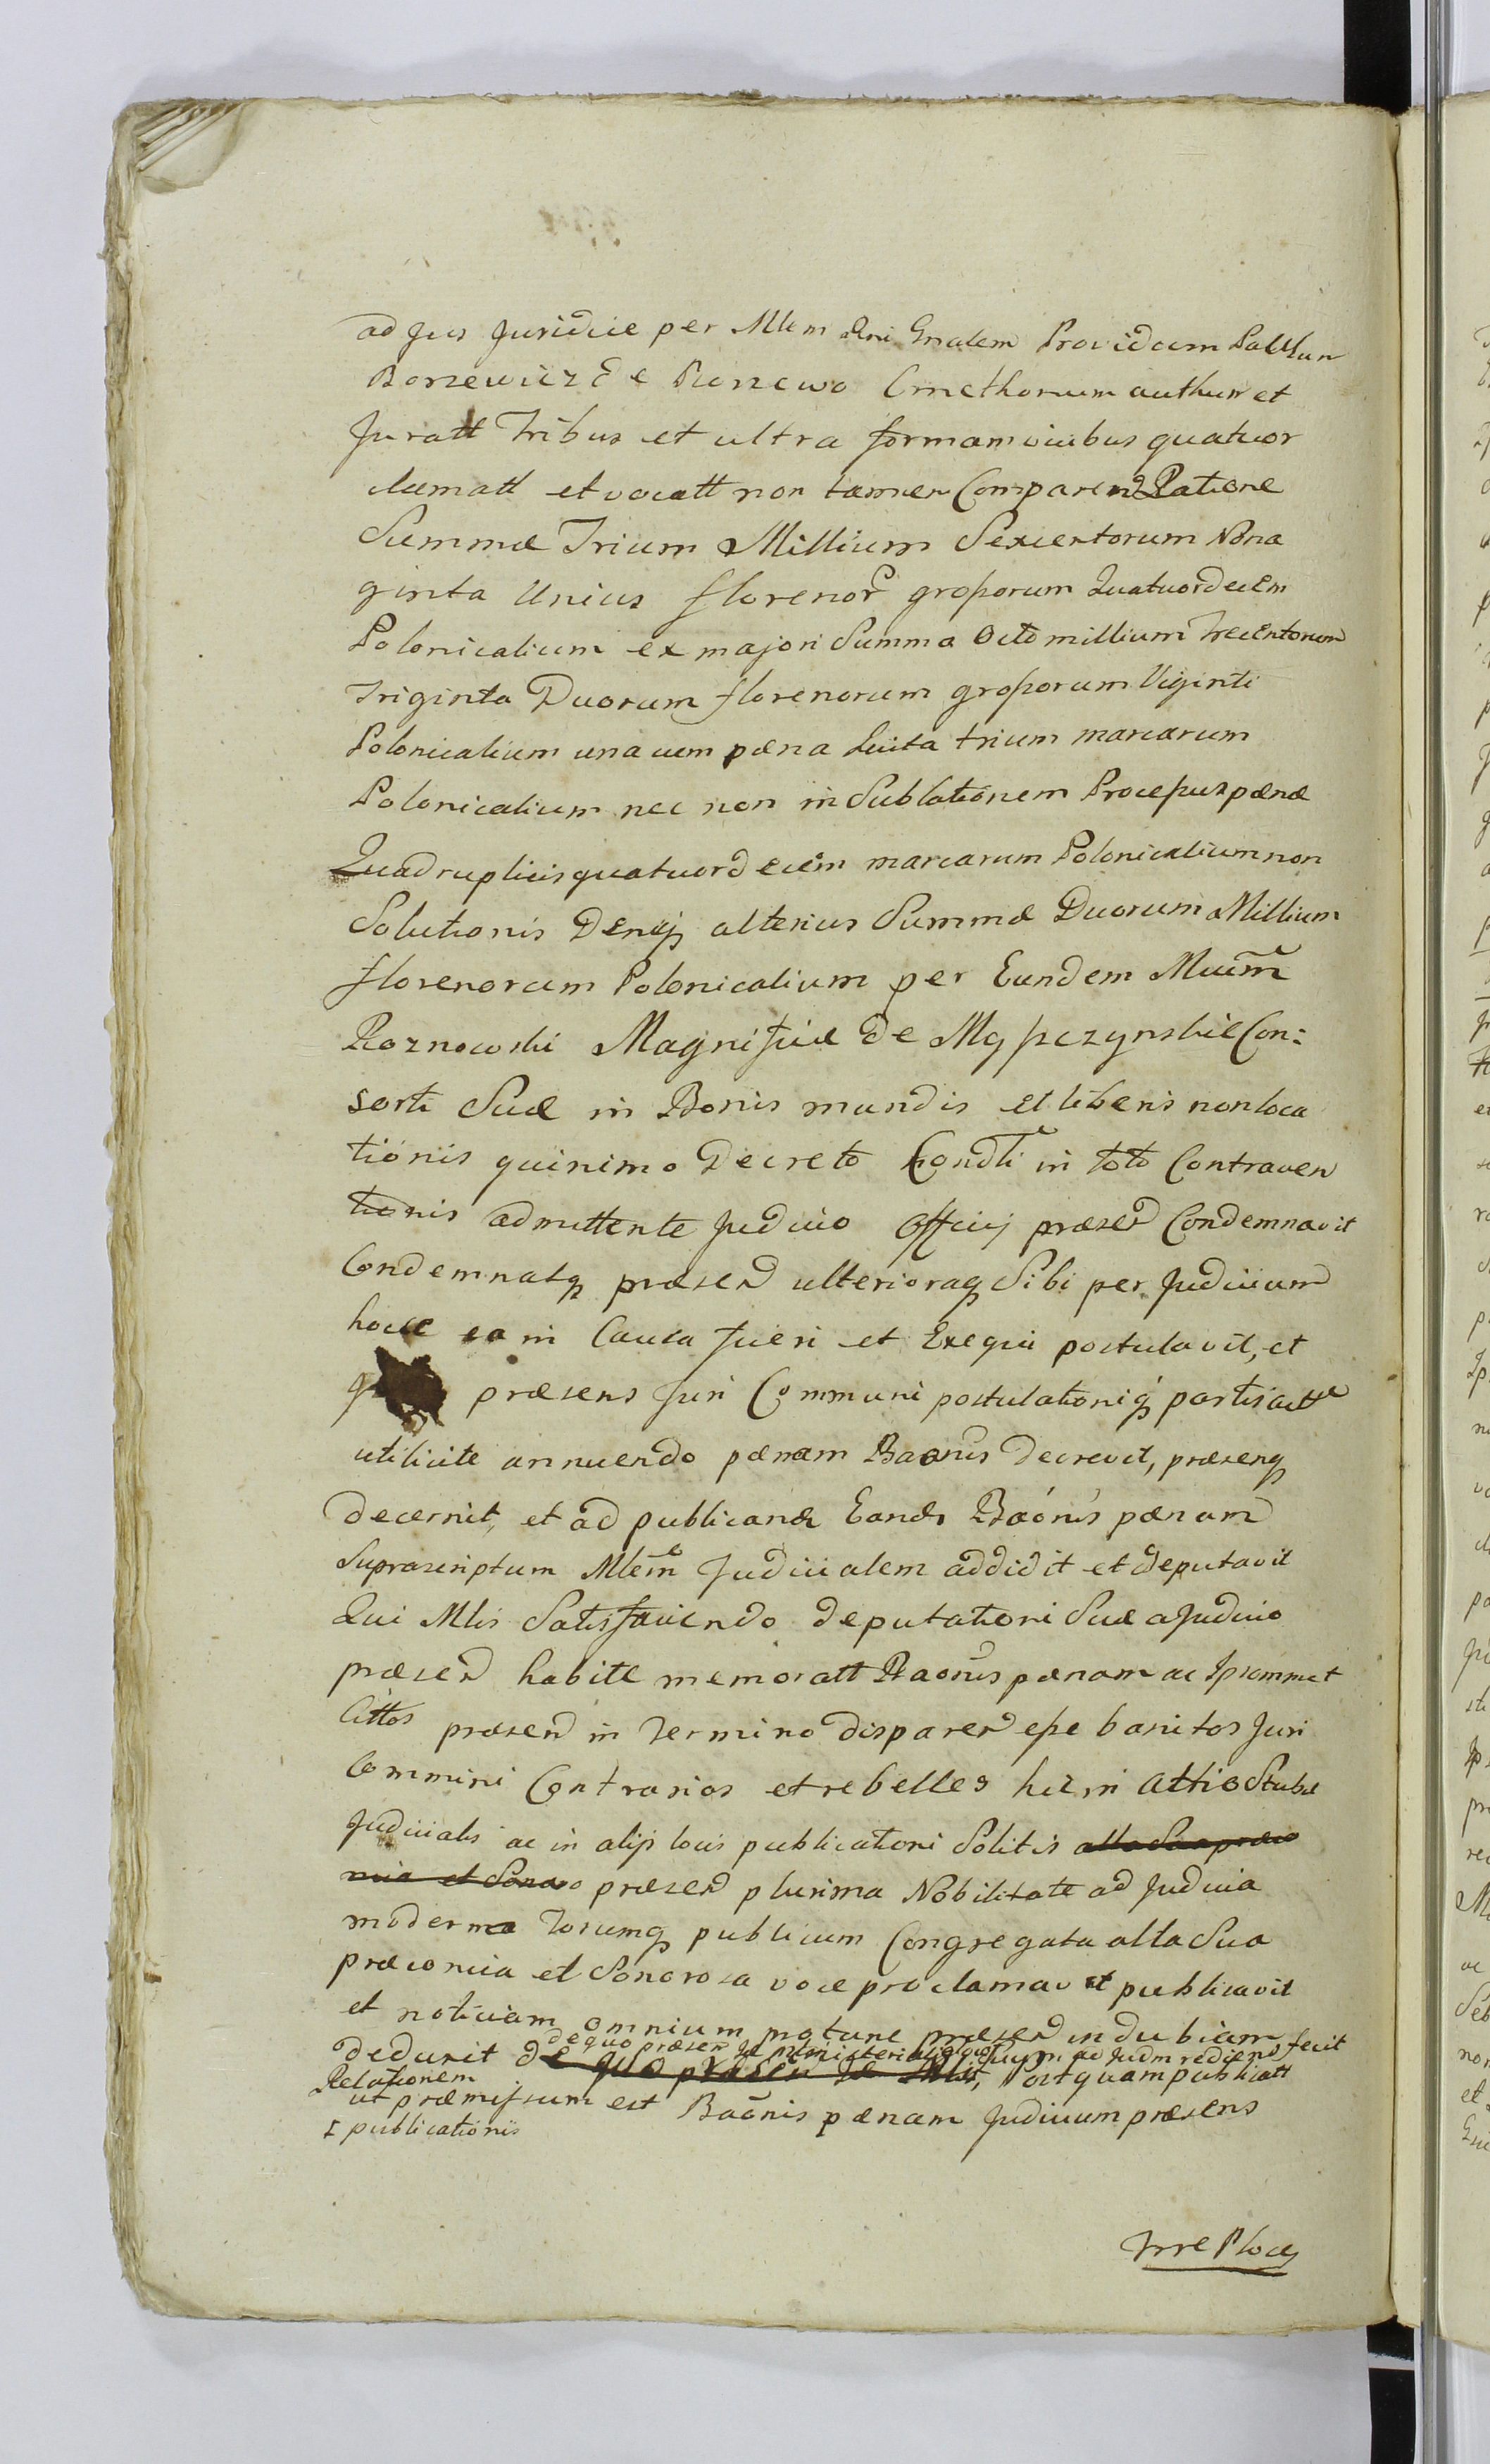 ad Jus Juridice per Mlem Rni Gnalem Providum
Borzewicz de Ciorzewo Cmethorum authum et
Juratt Tribus et ultra formam vicibus quatuor
clamatt et vocatt non tamen Comparend Ratione
Summæ Trium Millium Sexcentorum Nona
ginta Unius florenor grossorum Quatuordecem
Polonicalium ex majori Summa Octo millium Trecentorum
Triginta Duorum florenorum grossorum Viginti
Polonicalium una cum pæna Luita trium marcarum
Polonicalium nec non in Sublationem Processus pænæ
Quadruplicis quatuordecem marcarum Polonicalium non
Solutionis Denq alterius Summæ Duorum Millium
florenorum Polonicalium per Eundem Mucum
Roznowski Magnificæ de Myszczynskie Con:
sorti Suæ in Bonis mundis et liberis non loca
tionis quinimo Decreto Condti in toto Contraven
tionis admittente Judicio Officij præsen Condemnavit
Condemnatq præsen ulterioraq Sibi per Judicium
hocce ea in Causa fieri et Exequi postulavit, et
præsens Juri Communi postulationiq partis actt
utilicite annuendo pænam Baonis decrevit, præsenq
decernit, et ad publicand Eand Baonis pænam
Suprascriptum Mlem Judicialem addidit et deputavit
Qui Mlis Satisfaciendo deputationi Suæ a Judicio
præsen habitæ memoratt Baonis pænam ac Ipsommet
Cittos præsen in Termino disparen esse banitos Juri
Commini Contrarios et rebelles hic in attio Stubæ
Judicialis ac in alijs locis publicationi Solitis alta Sua præco
nica et Sonoro præsen plurima Nobilitate ad Judicia
moderna Forumq publicum Congregata alta Sua
præconica et Sonorosa voce proclamavit publicavit
et noticiam omnium protunc præsen in dubiam
de quo præsen se ministerialis ad Judm rediens fecit
deduxit de quo præsen se Mlis, Postquam publicatt
Relationem
ut præmissum est Baonis pænam Judicium præsens
publicationis
Trre Ploces